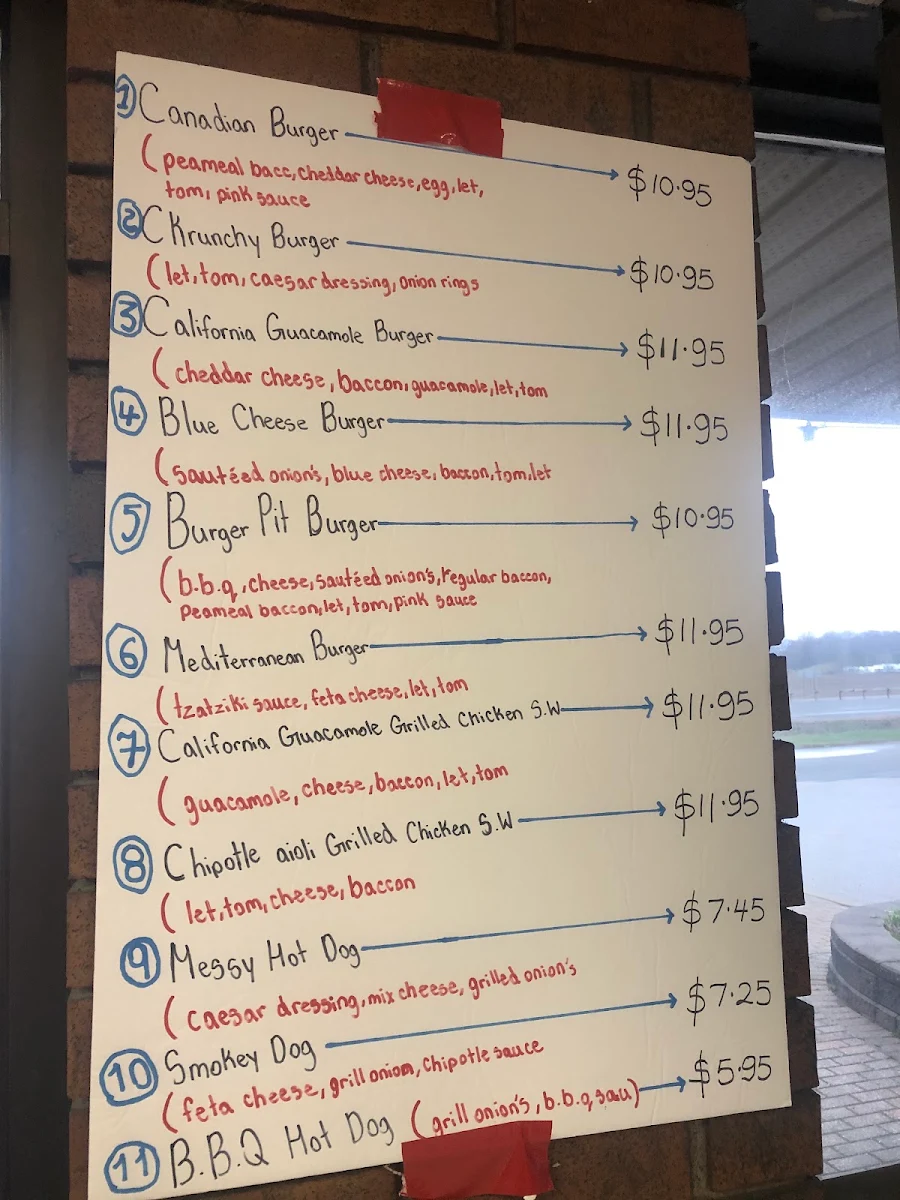 1 Canadian Burger → $10.95
(peameal bacc, cheddar cheese, egg, let,
tom, pink sauce
2 CKrunchy Burger → $10.95
(let, tom, caesar dressing, onion rings
3 California Guacamole Burger → $11.95
(cheddar cheese, baccon, guacamole, let, tom
4 Blue Cheese Burger → $11.95
(sautéed onion's, blue cheese, baccon, tom, let
5 Burger Pit Burger → $10.95
(b.b.q, cheese, sautéed onion's, regular baccon,
Peameal baccon, let, tom, pink sauce
6 Mediterranean Burger → $11.95
(tzatziki sauce, feta cheese, let, tom
7 California Guacamole Grilled Chicken S.W → $11.95
(guacamole, cheese, baccon, let, tom
8 Chipotle aioli Grilled Chicken S.W → $11.95
(let, tom, cheese, baccon
9 Messy Hot Dog → $7.45
(caesar dressing, mix cheese, grilled onion's
10 Smokey Dog → $7.25
(feta cheese, grill onion, chipotle sauce
11 B.B.Q Hot Dog (grill onion's, b.b.q, sau) → $5.95